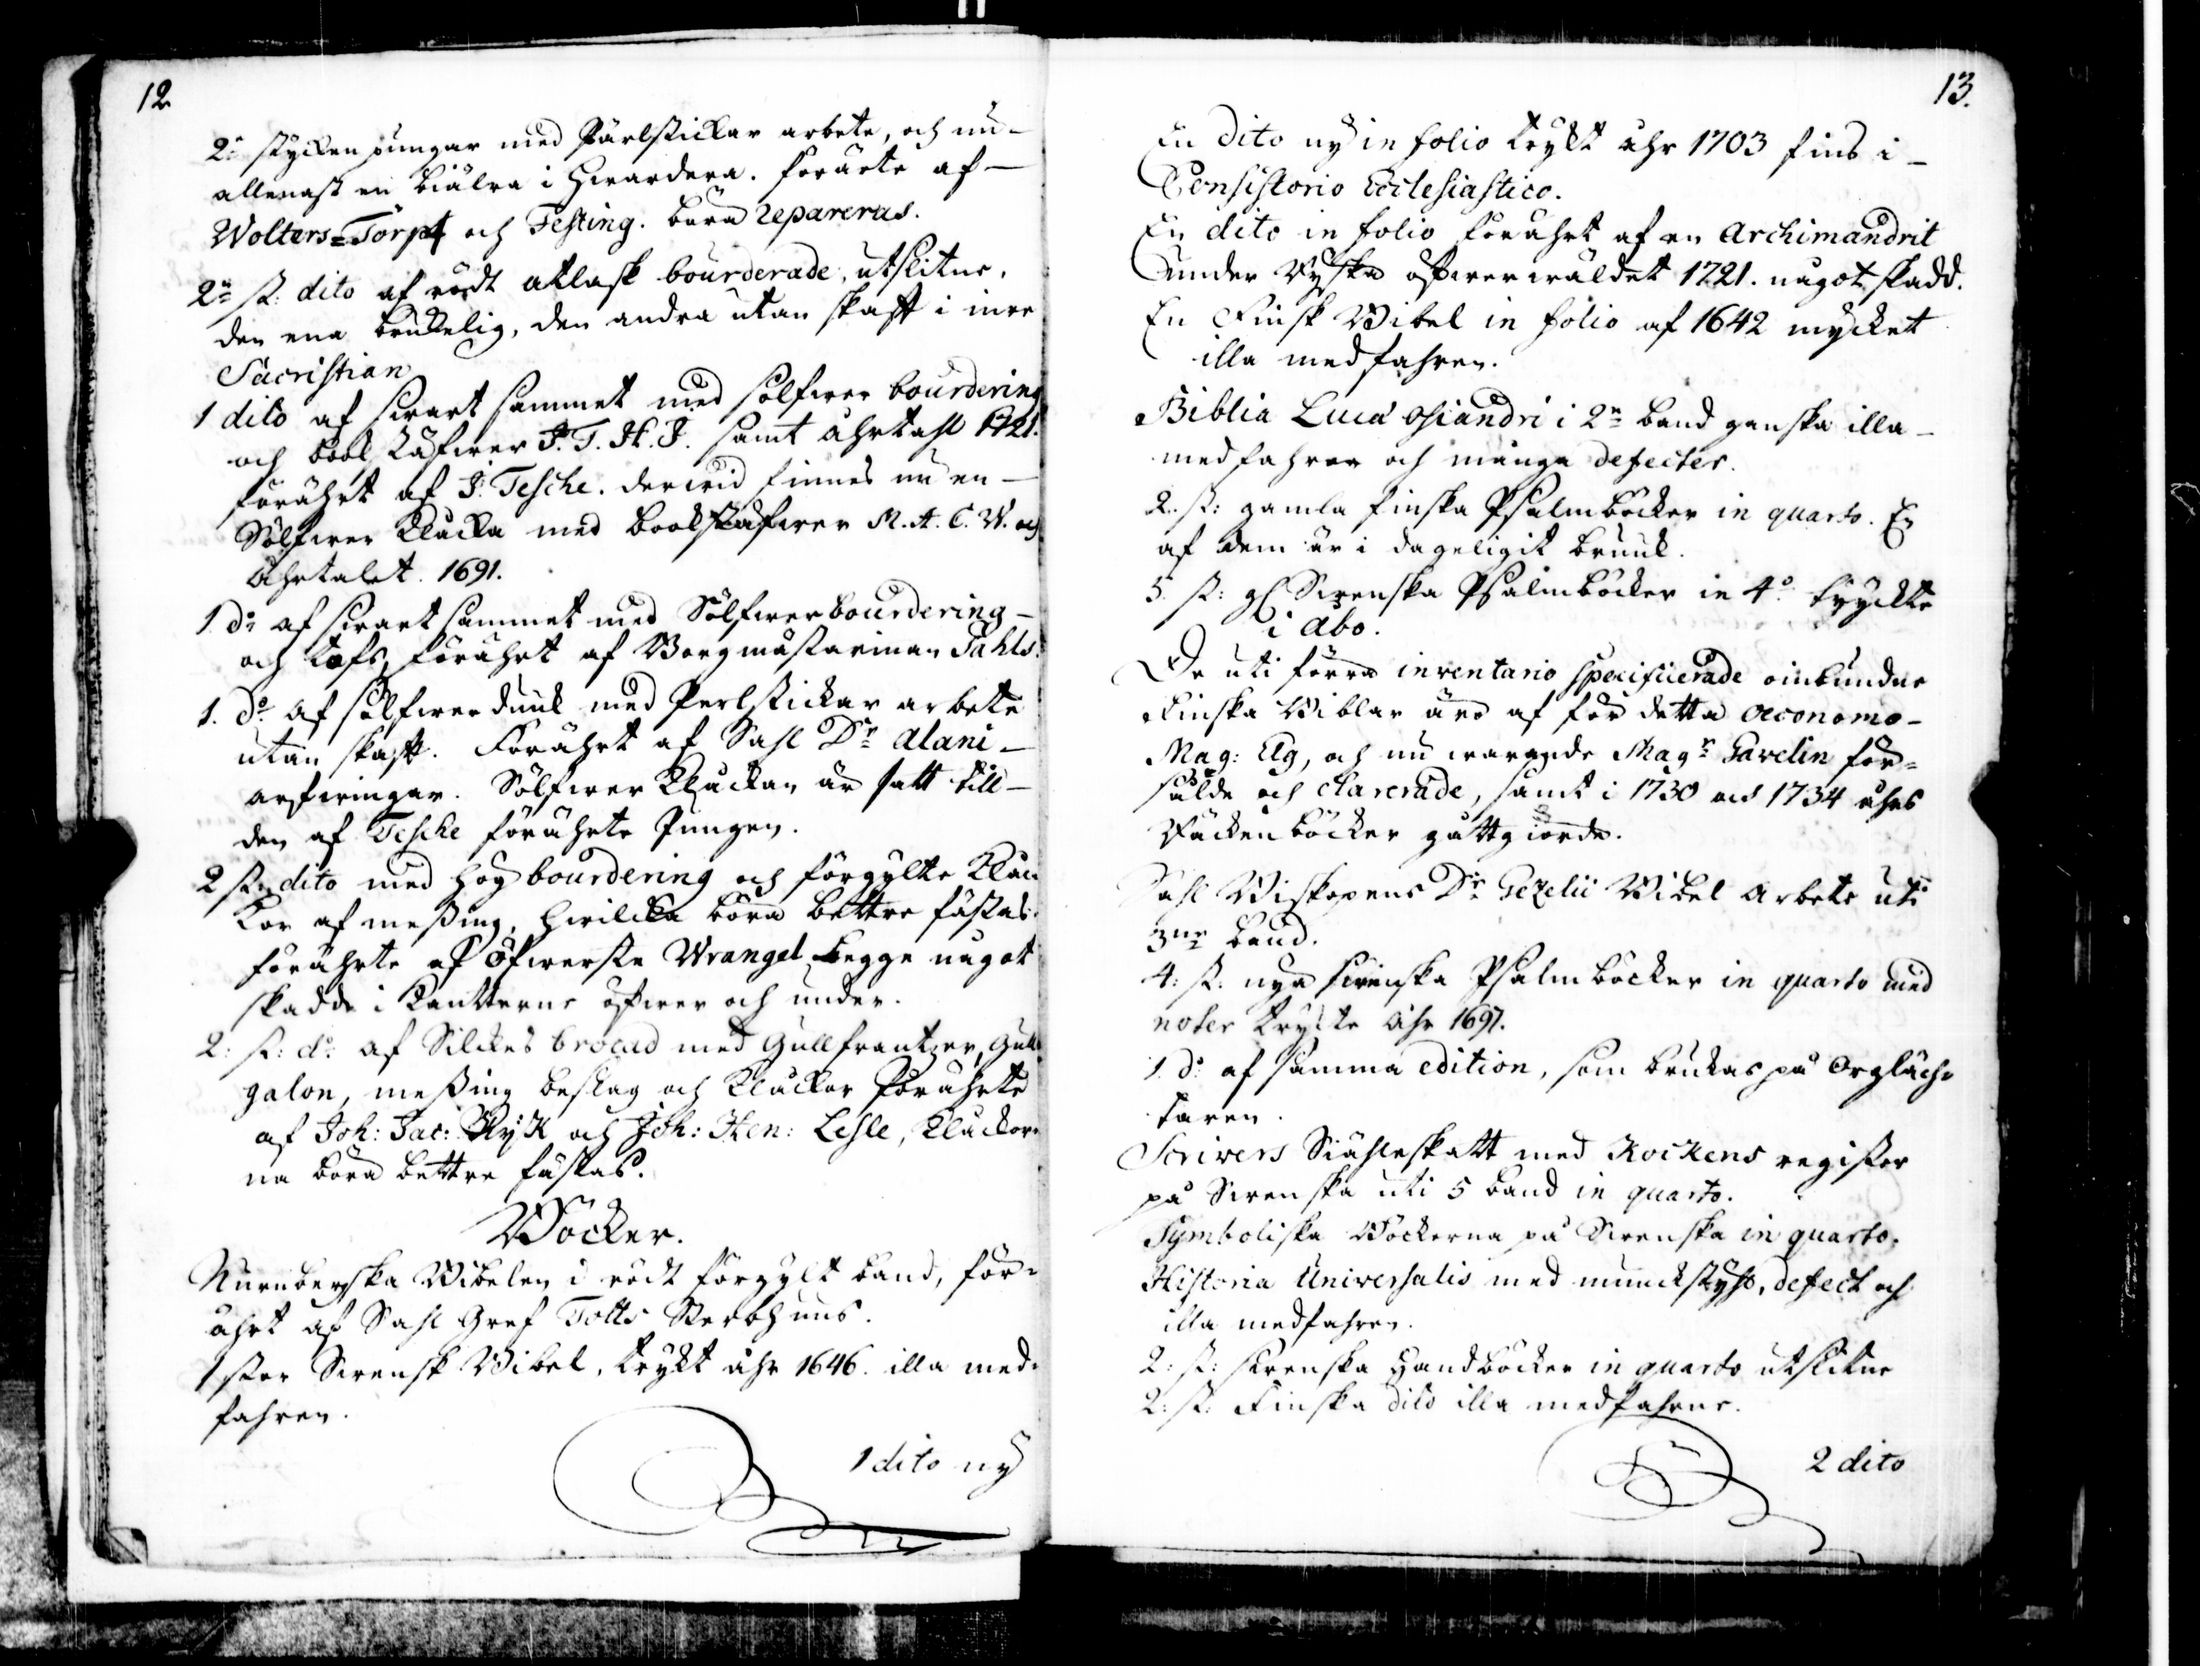 12
2:e stycken pungar med Pärlstickar arbete, och nu-
allenast en biälra i hwardera. forärte af-
Wolters=Torp och Festing. böra repareras.
2:e st: dito af rödt atlask bourderade, utslitne,
den ena brukelig, den andra utan skaft i inre
Sacristian
1 dito af swart sammet med solfwer bourdering
och bookstäfwer J. T. H. J. samt åhrtahl 1721.
förährt af J. Tesche. derwid finnes nu en-
Sölfwer klucka med bookstafwer M. A. C. W. och
åhrtalet. 1691.
1 d:o af swart sammet med Sölfwer bourdering-
och tofs, förährt af Borgmästarinnan Pahls.
1. d:o af sölfwer duuk med Perlstickar arbete
utan skaft. Förährt af Sahl D:r Alani-
arfwingar. Sölfwer kluckan är satt till-
den af Tesche förährte Pungen.
2 st: dito med hög bourdering och förgylte kluc
kor af messing, hwilcka böra bettre fästas.
förährte af Öfwerste Wrangel begge något
skadde i kantterne öfwer och under.
2: st: d:o af Silckes brocad med Gullfrantzer, Gull
galon, messing beslag och kluckor förährte
af Joh: Jac: Ryk och Joh: Hen: Lesle, kluckor-
na böra bettre fästas.
Böcker.
Nurnbergska Bibelen i rödt förgylt band, för-
ährt af Sahl Gref Totts Sterbhuus.
1 stor Swensk Bibel, tryckt åhr 1646. illa med-
fahren.
1 dito ny
13.
En dito ny in folio tryckt åhr 1703 fins i-
Consistorio Ecclesiastico.
En dito in folio förährt af en Archimandrit
under Ryska öfwerwäldet 1721. något skadd.
En Finsk Bibel in folio af 1642 mycket
illa medfahren.
Biblia Lucæ Osiandri i 2:ne band ganska illa-
medfahren och många defecter.
2. st: gamla finska Psalmböcker in quarto. En
af dem är i dageligit bruuk.
5. st: gl Swenska Psalmböcker in 4:o tryckte
i Åbo.
De uti förra inventario specificerade oinbundne
Finska Biblar äro af för detta Oeconomo-
Mag: Elg, och nu warande Mag:r Pavelin för-
sålde och clarerade, samt i 1730 och 1734 åhrs
Räckenböcker gåttgiorde.
Sahl Biskopens D:r Gezelii Bibel Arbete uti
3:ne band.
4: st. nya swenska Psalmböcker in quarto med
noter tryckte åhr 1697.
1. d:o af samma edition, som brukas på Orgläch-
taren.
Scrivers Siähleskatt med Kockens register
på Swenska uti 5 band in quarto.
Symboliska Böckerna på Swenska in quarto.
Historia Universalis med munckstyhl, defect och
illa medfahren.
2: st: swenska Handböcker in quarto utslitne
2: st: Finska dito illa medfahrne.
2 dito